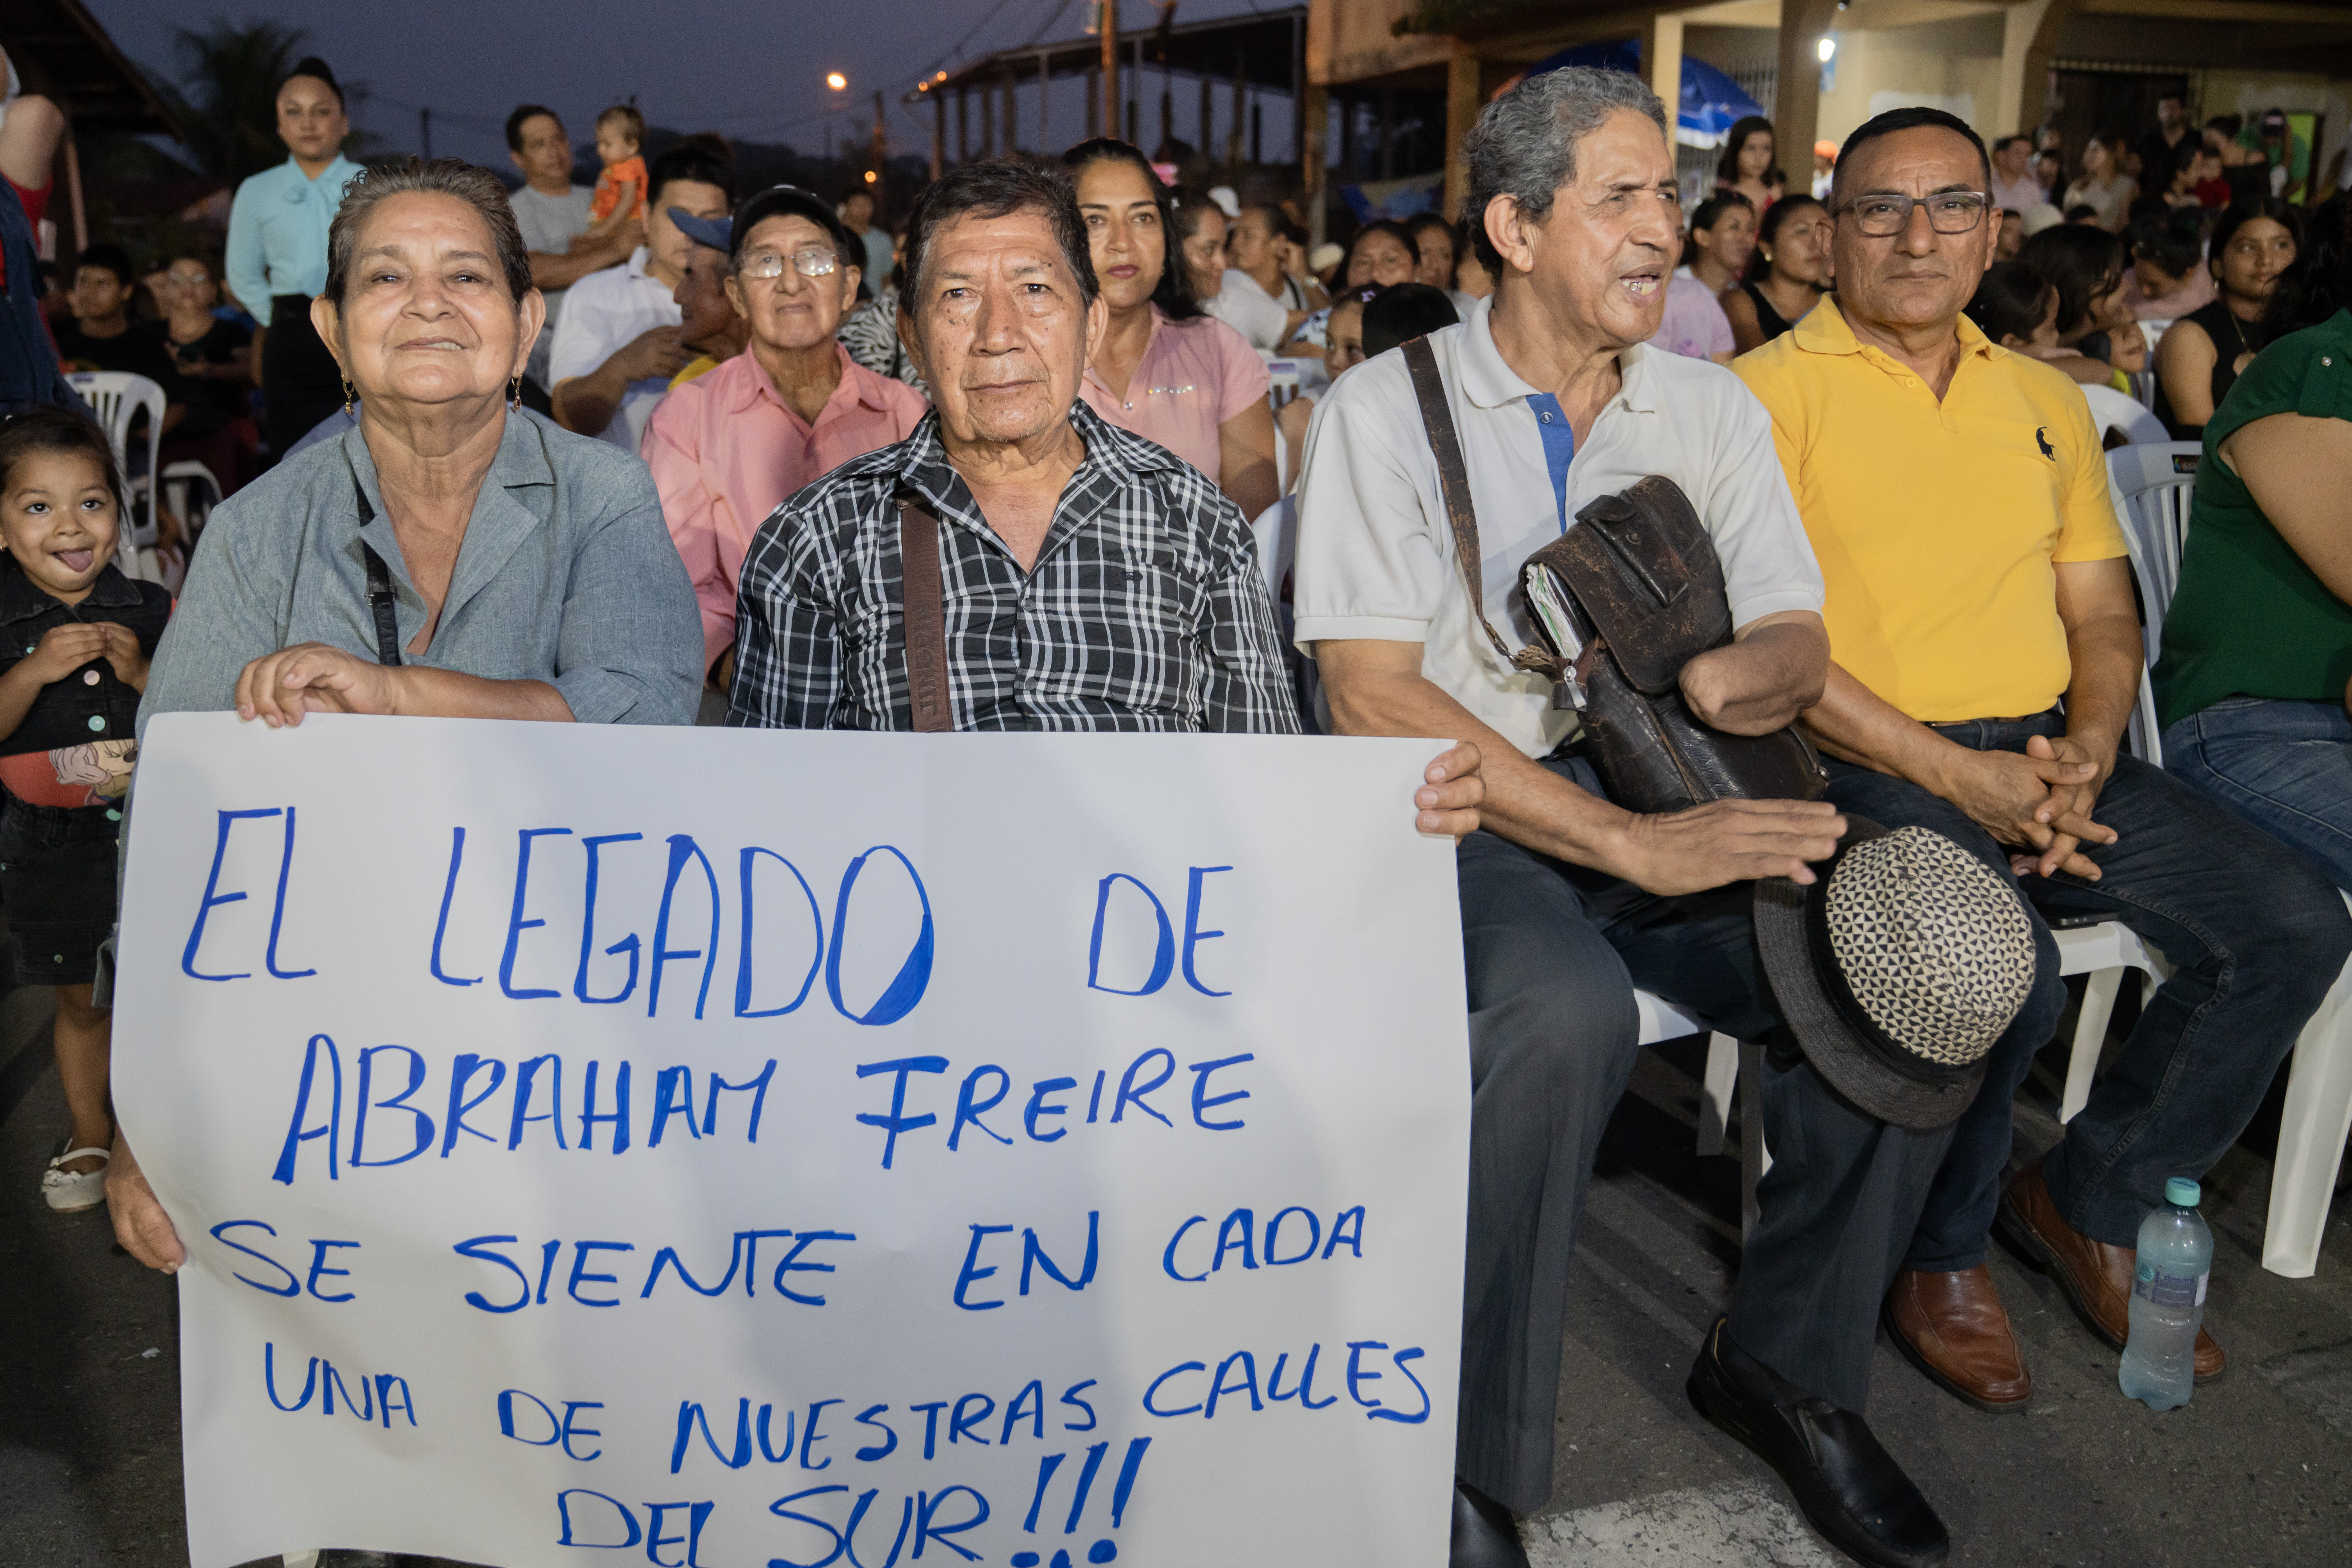 EL LEGADO DE
ABRAHAM FREIRE
SE SIENTE EN CADA
UNA DE NUESTRAS CALLES
DEL SUR!!!
JINGPIN